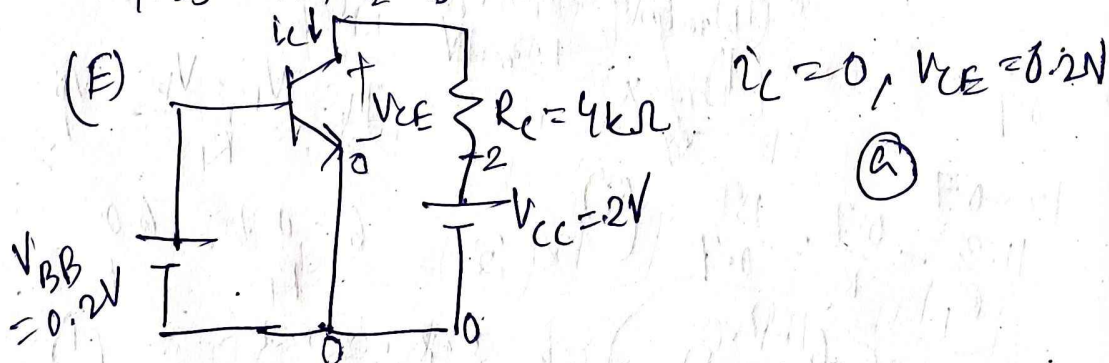 (E)
ic↓
+
VCE
-
0
RC = 4kΩ
2
VCC = 2V
VBB
= 0.2V
0
0
iC = 0, VCE = 0.2V
(a)